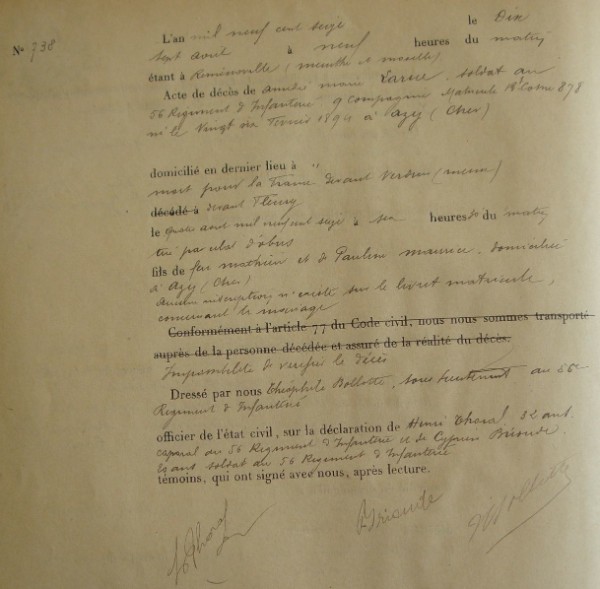 N° 738
L'an mil neuf cent seize le Dix
sept avril à neuf heures du matin
étant à Réméréville (meurthe et moselle)
Acte de décès de marie Larue, soldat au
56 Regiment d'Infanterie 9 Compagnie Matricule 878
né le Vingt six Fevrier 1894 à azy (Cher)
domicilié en dernier lieu à "
mort pour la France devant Verdun (meuse)
décédé à devant Fleury
le quatre aout mil neuf cent seize à six heures du matin
tué par éclat d'obus
fils de feu mathieu et de Pauline maurice, domiciliée
à azy (Cher)
aucune inscription n'existe sur le livret matricule,
concernant le mariage
Conformément à l'article 77 du Code civil, nous nous sommes transporté
auprès de la personne décédée et assuré de la réalité du décès.
Impossibilité de verifier le décès
Dressé par nous Théophile Bollotte, sous lieutenant au 56e
Regiment d'Infanterie
officier de l'état civil, sur la déclaration de Henri Thoral, 32 ans
caporal au 56 Regiment d'Infanterie et de Cyprien Brionde
ans soldat au 56 Regiment d'Infanterie
témoins, qui ont signé avec nous, après lecture.